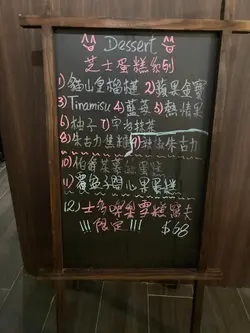 Dessert
芝士蛋糕系列
1) 貓山皇榴槤 2) 蘋果金寶
3) Tinamisu 4) 藍莓 5) 熱情果
6) 柚子 7) 宇治抹茶
8) 朱古力焦糖 9) 朱古力
10)
11) 覆盆子開心果蛋糕
12) 士多啤梨雪糕窩夫
!!! 限定 !!! $68